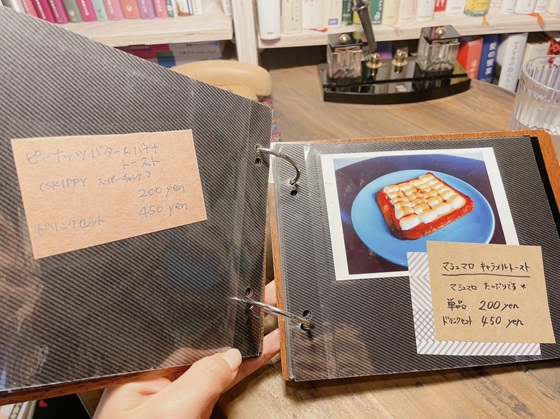 ピーナッツバター&バナナ
トースト
(SKIPPY スーパーチャンク)
200 yen
ドリンクセット 450 yen
マシュマロ キャラメルトースト
マシュマロ たっぷりです
単品 200 yen
ドリンクセット 450 yen